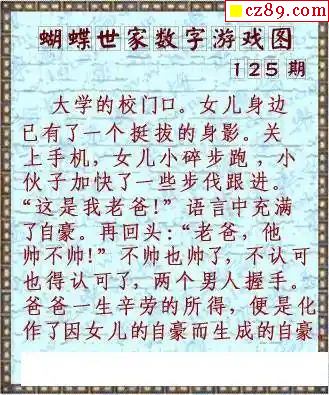 cz89.com
蝴蝶世家数字游戏图
125期
大学的校门口。女儿身边
已有了一个挺拔的身影。关
上手机，女儿小碎步跑，小
伙子加快了一些步伐跟进。
“这是我老爸！”语言中充满
了自豪。再回头：“老爸，他
帅不帅！”不帅也帅了，不认可
也得认可了，两个男人握手。
爸爸一生辛劳的所得，便是化
作了因女儿的自豪而生成的自豪